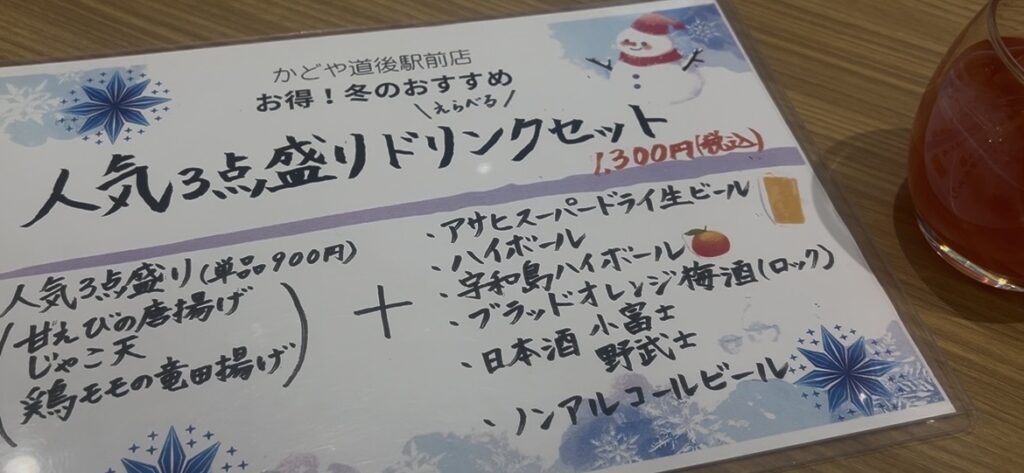 かどや道後駅前店
お得！冬のおすすめ
\えらべる/
人気3点盛りドリンクセット
1,300円(税込)
人気3点盛り(単品900円)
(甘えびの唐揚げ
じゃこ天
鶏モモの竜田揚げ)
+
・アサヒスーパードライ生ビール
・ハイボール
・宇和島ハイボール
・ブラッドオレンジ梅酒(ロック)
・日本酒 小富士
野武士
・ノンアルコールビール